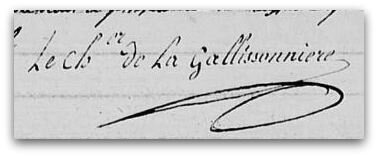 Le Ch.er de La Gallissonniere